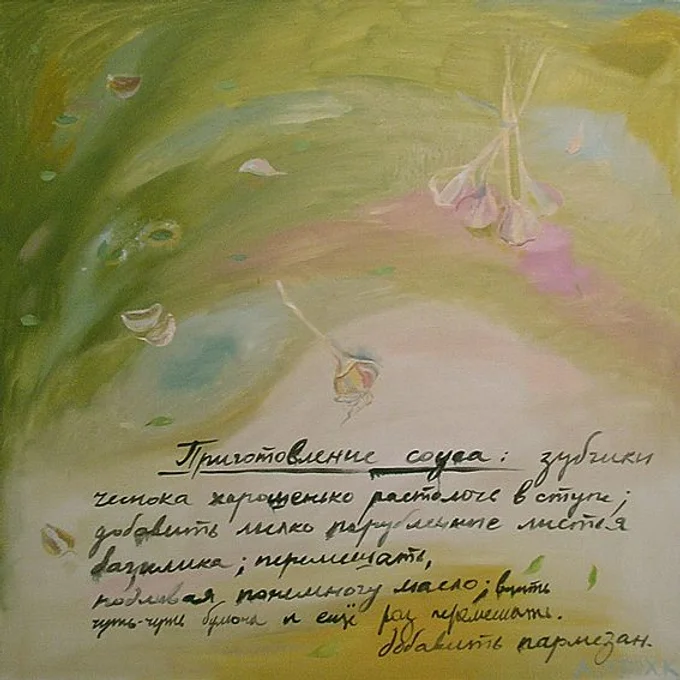 Приготовление соуса: зубчики
чеснока хорошенько растолочь в ступе;
добавить мелко порубленные листья
базилика; перемешать,
подливая понемногу масло; влить
чуть-чуть бульона и ещё раз перемешать.
Добавить пармезан.